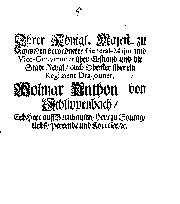 Ihrer Königl. Majest. zu
Schweden verordneter General-Major und
Vice-Gouverneur über Ehstland und die
Stadt Reval / auch Obrister über ein
Regiment Dragouner,
Wolmar Anthon von
Schlippenbach /
Erbherr auff